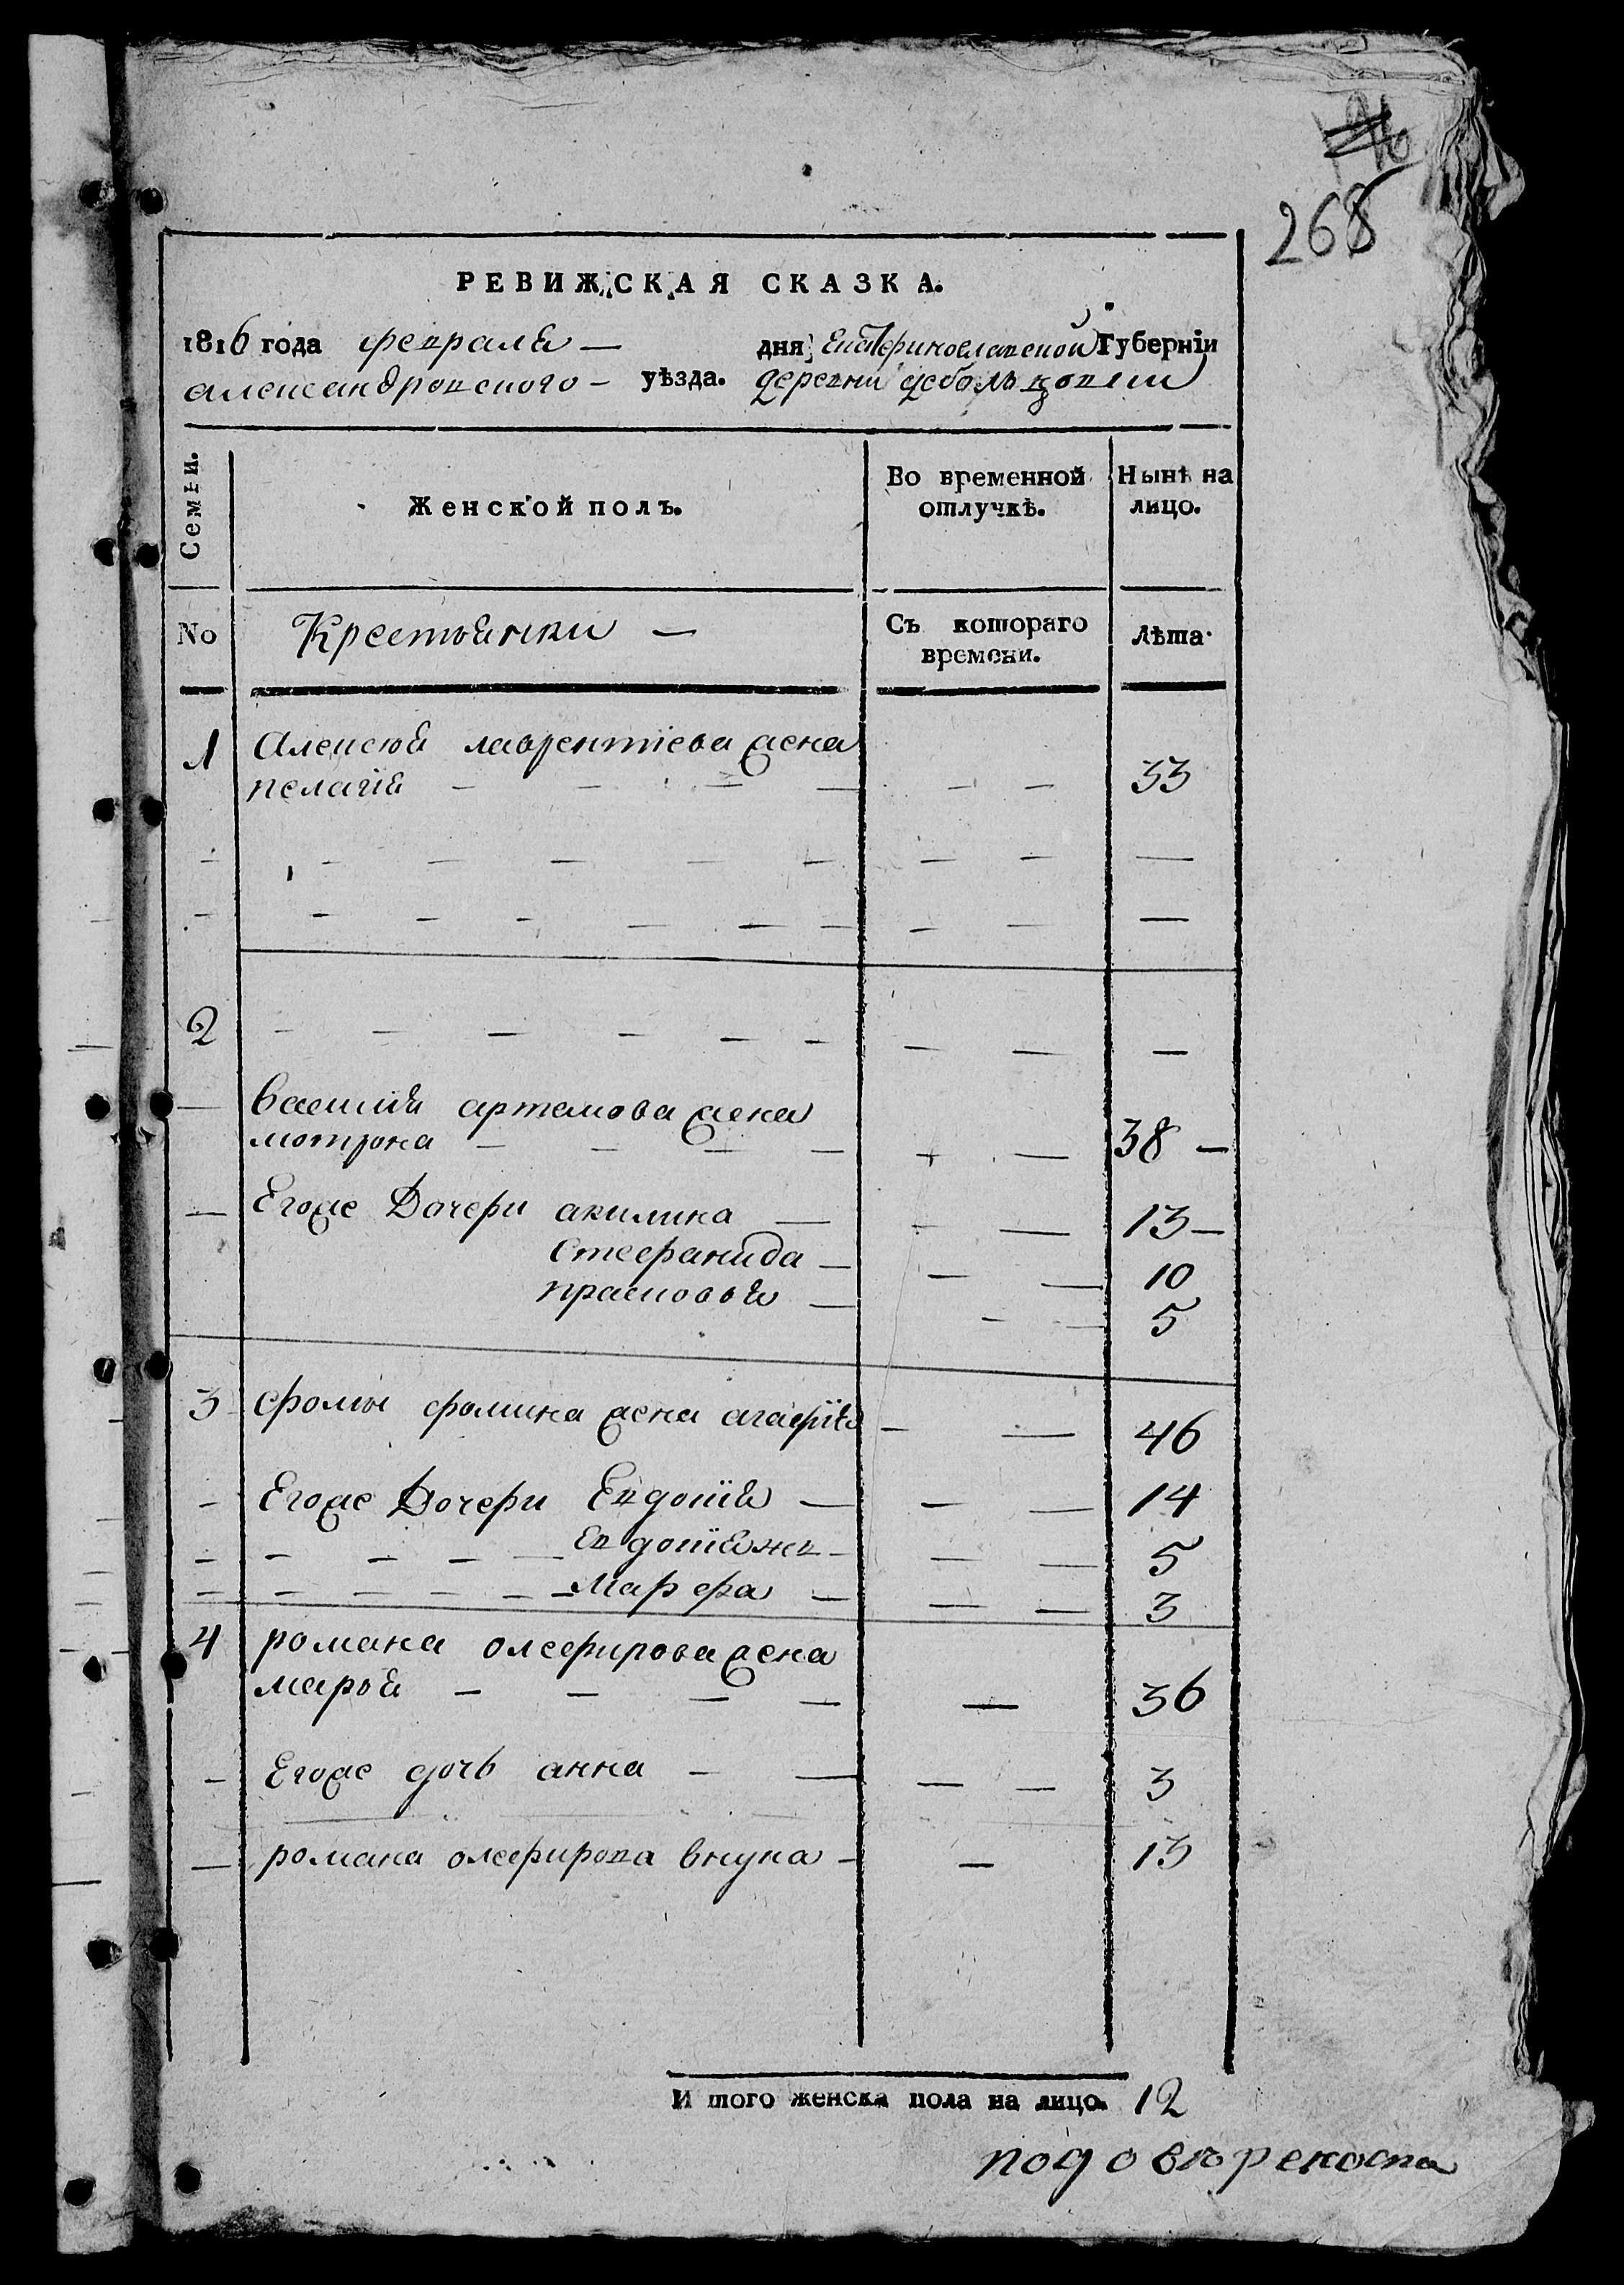 268
РЕВИЖСКАЯ СКАЗКА.
1816 года февраля — дня Екатеринославской Губерніи
александровского — уѣзда. деревни
Семьи. Женской полъ. Во временной отлучкѣ. Нынѣ на лицо.
No Крестьянки — Съ котораго времени. Лѣта.
1 Алексея лаврентіева жена
пелагія — — — — — — 33
— — — — — — — — —
— — — — — — — — — —
2 — — — — — — — — —
— Василия артемова жена
мотрона — — — — — — 38 —
— Егоже Дочери акилина — — — 13 —
Стефанида — — — 10
прасковья — — — 5
3 фомы фомина жена агафія — — 46
— Егоже Дочери Евдокія — — — 14
— — — — — Евдокія жъ — — — 5
— — — — — — Марфа — — — 3
4 романа олеферова жена
марья — — — — — 36
— Егоже дочь анна — — — — 3
— романа олефирова внука — — 13
И того женска пола на лицо. 12